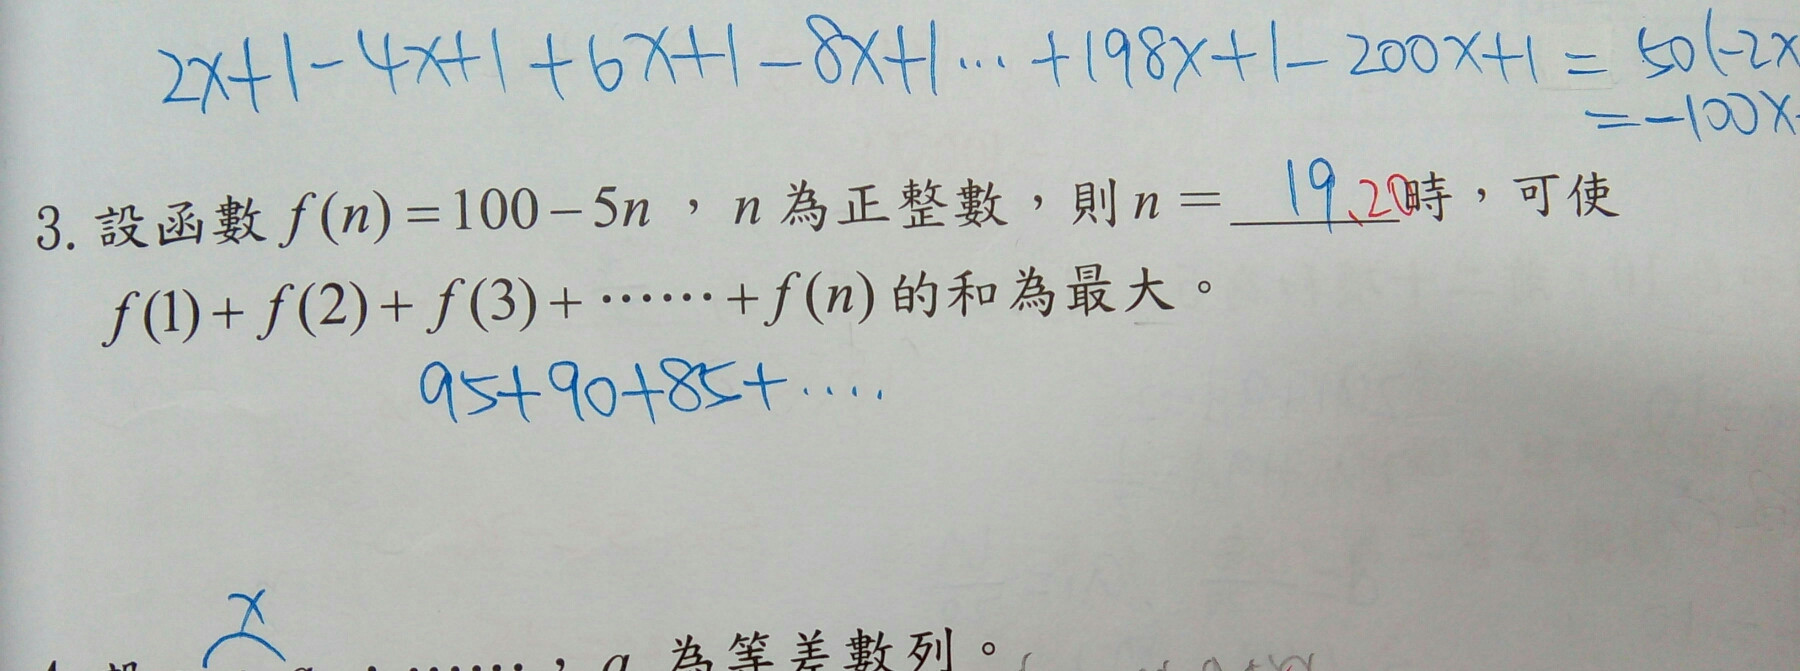 2x+1-4x+1+6x+1-8x+1...+198x+1-200x+1=50(-2x
=-100x
3. 設函數 f(n)=100-5n，n 為正整數，則 n = 19、20時，可使
f(1)+f(2)+f(3)+……+f(n) 的和為最大。
95+90+85+....
x
為等差數列。